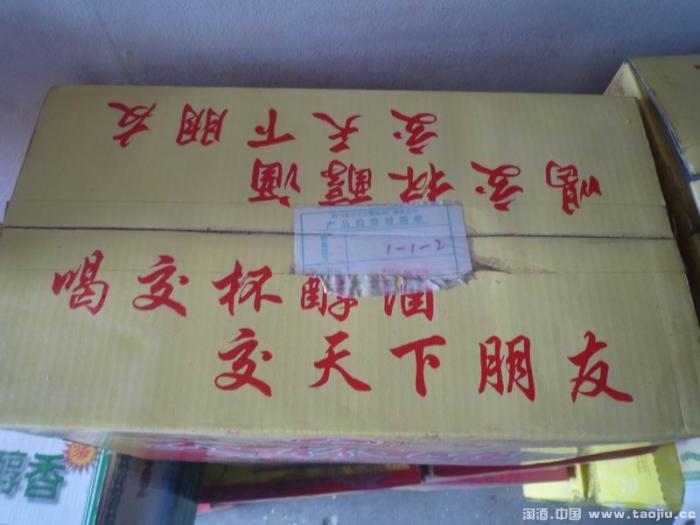 喝交杯醇酒
交天下朋友
产品检验封箱单
1-1-2
喝交杯醇酒
交天下朋友
醇香
淘酒.中国 www.taojiu.cc